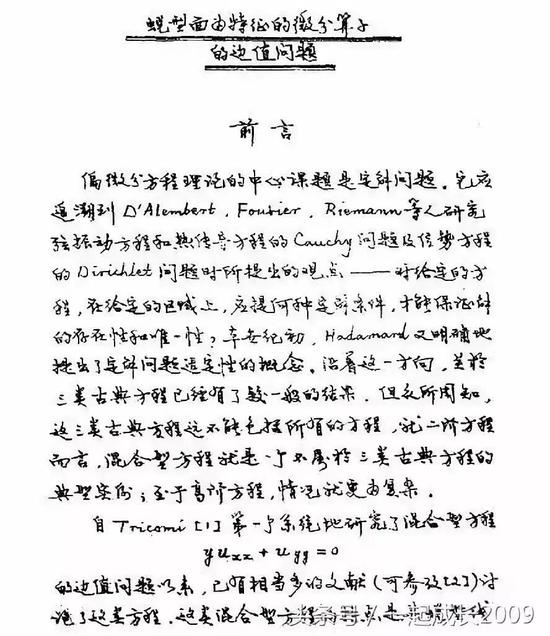 蜕型面由特征的微分算子
的边值问题
前言
偏微分方程理论的中心课题是定解问题。它应
追溯到 D'Alembert, Fourier, Riemann 等人研究
弦振动方程和热传导方程的 Cauchy 问题及位势方程
的 Dirichlet 问题时所提出的观点——对给定的方
程,在给定的区域上,应提何种定解条件,才能保证解
的存在性和唯一性?本世纪初,Hadamard 又明确地
提出了定解问题适定性的概念。沿着这一方向,关於
三类古典方程已经有了较一般的结果。但众所周知,
这三类古典方程还不能包括所有的方程,就二阶方程
而言,混合型方程就是一个不属於三类古典方程的
典型实例;至于高阶方程,情况就更由复杂。
自 Tricomi [1] 第一个系统地研究了混合型方程
yu_xx + u_yy = 0
的边值问题以来,已有相当多的文献(可参攷[2])讨
论了这类方程。这类混合型方程的特点是
头条号/一起成长2009